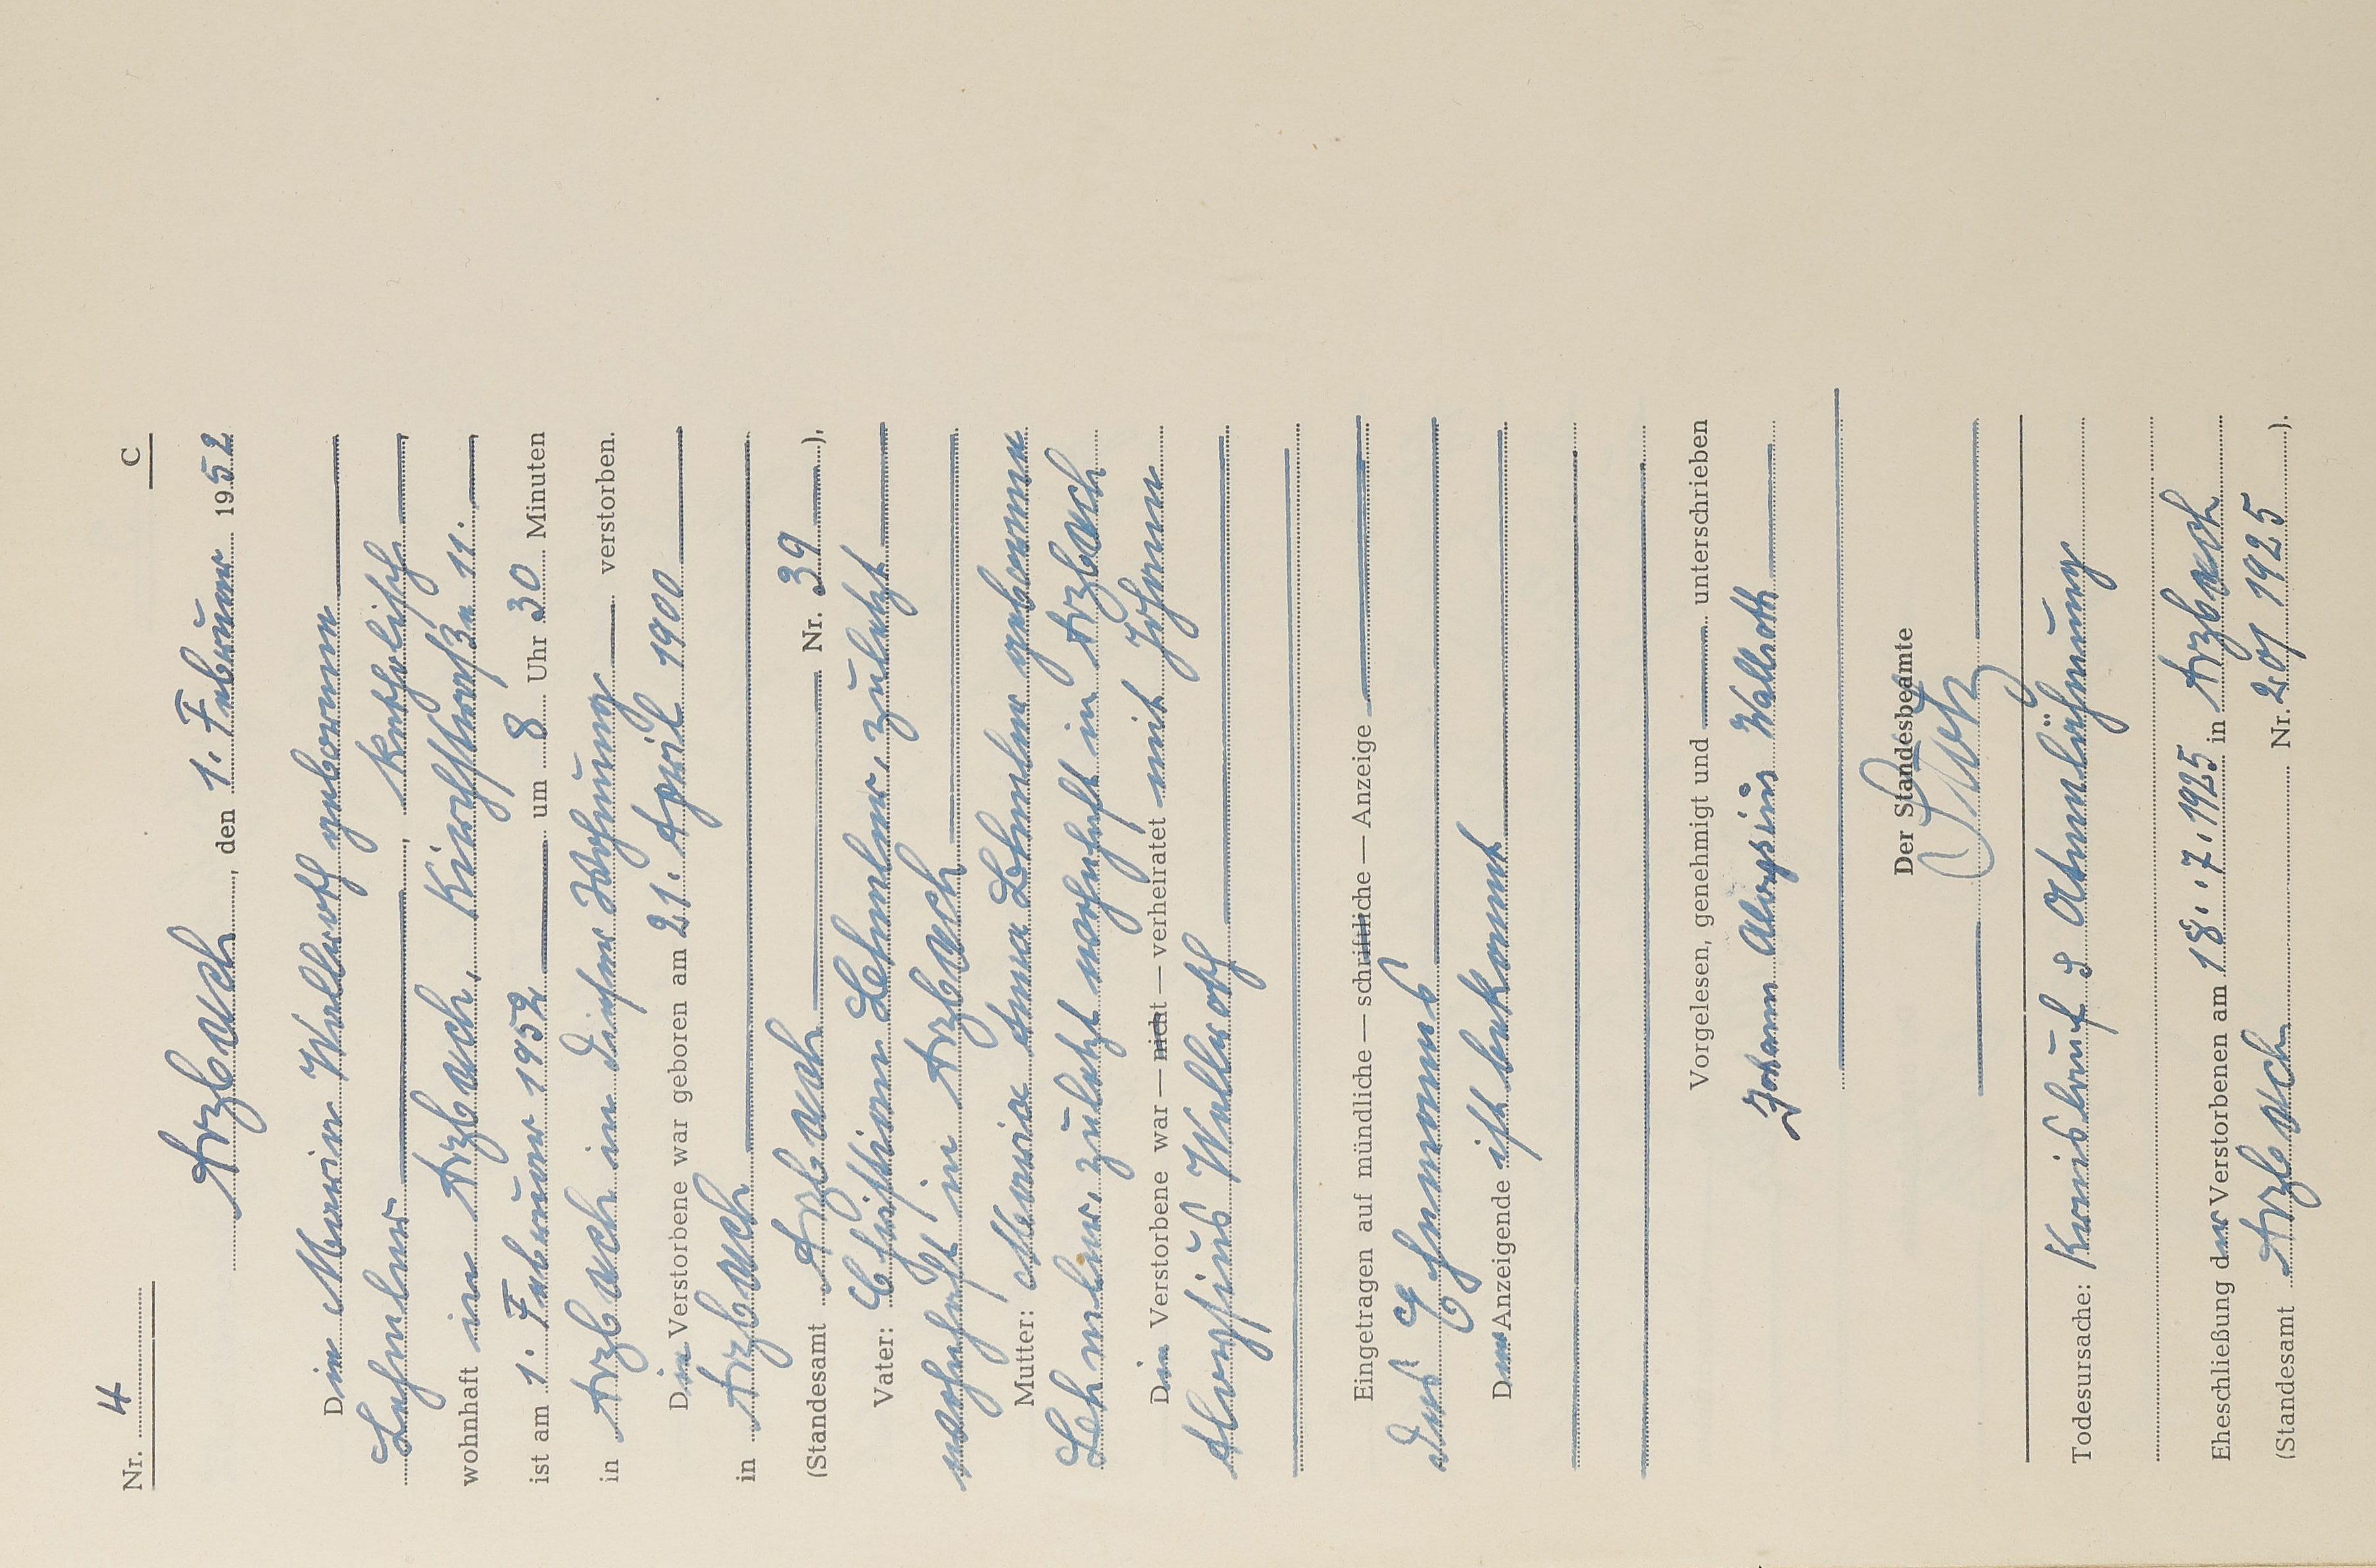 Nr. 4 C
Arzbach, den 1. Februar 1952
Die Maria Wallroth geborene
Lehmler, katholisch
wohnhaft in Arzbach, Kirchstraße 11.
ist am 1. Februar 1952 um 8 Uhr 30 Minuten
in Arzbach in dieser Wohnung verstorben.
Die Verstorbene war geboren am 21. April 1900
in Arzbach
(Standesamt Arzbach Nr. 39 ).
Vater: Christian Lehmler, zuletzt
wohnhaft in Arzbach
Mutter: Maria Anna Lehmler geborene
Lehmler, zuletzt wohnhaft in Arzbach
Die Verstorbene war — nicht — verheiratet mit Johann
Aloysius Wallroth
Eingetragen auf mündliche — schriftliche — Anzeige
des Ehemanns
Der Anzeigende ist bekannt
Vorgelesen, genehmigt und unterschrieben
Johann Aloysius Wallroth
Der Standesbeamte
Todesursache: Kreislauf & Atemlähmung
Eheschließung der Verstorbenen am 18.7.1925 in Arzbach
(Standesamt Arzbach Nr. 20/1925 ).